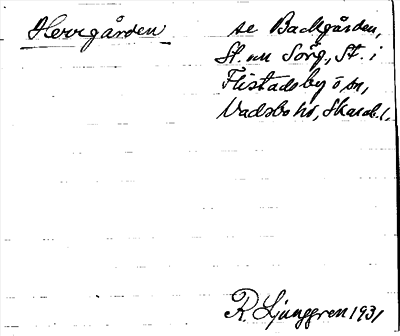 Herrgården
se Backgården,
St. nu Sörg., St. i
Flistadsby ö sn,
Vadsbo hd, Skarab. l.
R. Ljunggren 1931